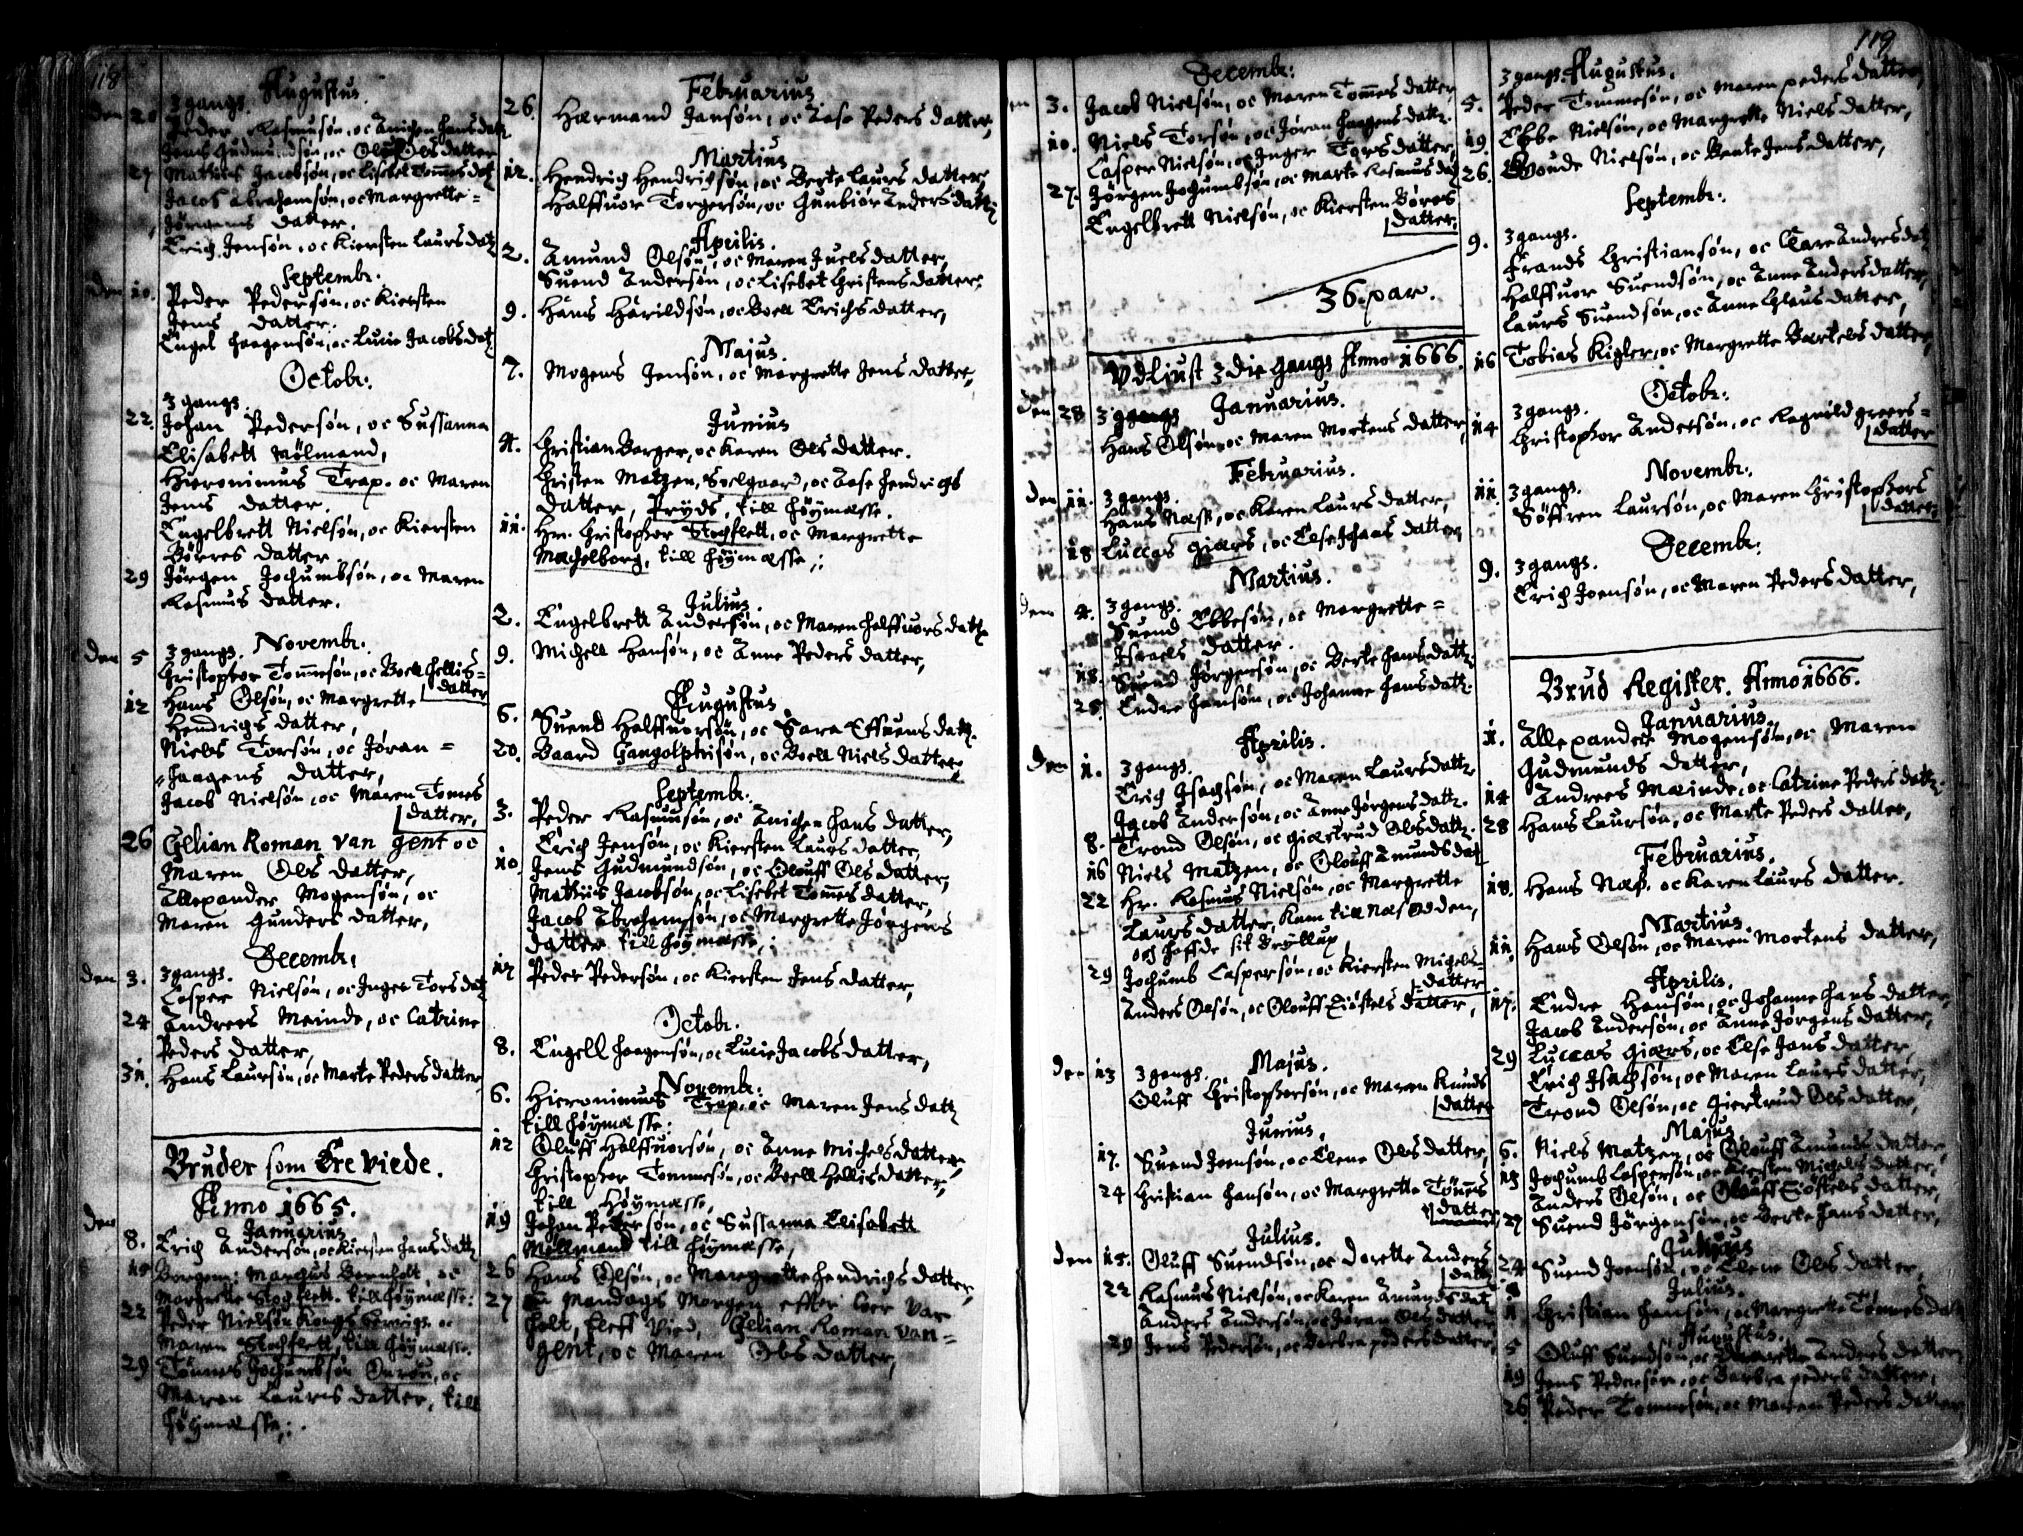 118
3 gangs. Augustus.
den 20 Peder Rasmusøn, oc Anichen Hans datt.
Jens Gudmundsøn, oc Oluff Ols datter
27 Mathias Jacobsøn, oc Lisebet Tom̅es dat
Jacob Abrahamsøn, oc Margrette =
Jørgens datter.
Erich Jensøn, oc Kiersten Laurs datz
Septembr.
den 10. Peder Pedersøn, oc Kiersten
Jens datter.
Engel Haagensøn, oc Lucie Jacobs dat
Octobr.
3 gangs.
22. Johan Pedersøn, oc Sussanna
Elisabett Mølmand,
Hieronimus Trap. oc Maren
Jens datter.
Engelbrett Nielsøn, oc Kiersten
Børres datter
29 Jørgen Jochumbsøn, oc Maren
Rasmus datter.
3 gangs. Novembr.
den 5 Christopher Tom̅esøn, oc Boell Hellis =
datter
12 Hans Olsøn, oc Margrette
Hendrichs datter,
Niels Torsøn, oc Jøran =
Haagens datter,
Jacob Nielsøn, oc Maren Tom̅es
datter,
26 Gelian Roman van gent oc
Maren Ols datter,
Allexander Mogensøn, oc
Maren Gunders datter,
Decembr.
den 3. 3 gangs.
Casper Nielsøn, oc Inger Tors dat
24 Andrees Meinde, oc Catrine
Peders datter,
31. Hans Laursøn, oc Marte Peders datter
Bruder som Ere Viede.
Anno 1665.
den Januarius
8. Erich Andersøn, oc Kiersten Jens datz
15 Borgem: Marchus Bernholt, oc
Margrette Stochflett. till Høymesse:
22 Peder Nielsøn Kongs oc
Maren Stochflett, till Høymesse.
29 Tønnes Jochumbsøn oc
Maren Laurs datter, till
Høymesse:.
Februarius
26. Hermand Jansøn, oc Aase Peders datter,
Martius
12. Hendrich Hendrichsøn, oc Berte Laurs datter
Halffuor Torgersøn, oc Gunbiør Anders datt
Aprilis.
2. Amund Olsøn, oc Maren Juels datter,
Suend Andersøn, oc Lisebet Christens datter;
9. Hans Harildsøn, oc Boell Erichs datter,
Majus.
7. Mogens Jensøn, oc Margrette Jens datter,
Junius
4. Christian Borger, oc Karen Ols datter.
Christen Matzen, Soelgaard, oc Aase Hendrichs
datter, Pryds, till Høymesse.
11. Hr. Christopher Stochflett, oc Margrette
Machelborg, till Høymesse ;:
Julius.
2. Engelbrett Andersøn, oc Maren Halffuors datt
9. Michell Hansøn, oc Anne Peders datter,
Augustus
6. Suend Halffuorsøn, oc Sara Effuens datt.
20. Baard Gangolphisøn, oc Boell Niels datter,
Septembr.
3. Peder Rasmusøn, oc Anichen Hans datter,
Erich Jensøn, oc Kiersten Laurs datter,
10. Jens Gudmundsøn, oc Olouff Ols datter,
Mathiis Jacobsøn, oc Lisebet Tom̅es datter,
Jacob Abrahamsøn, oc Margrette Jørgens
datter till Høymesse;
17 Peder Pedersøn, oc Kiersten Jens datter,
Octobr.
8. Engell Haagensøn, oc Lucie Jacobs datter,
Novembr:
6. Hieronimus Trap, oc Maren Jens datz
till Høymesse:
12 Oluff Halffuorsøn, oc Anne Michels datter,
Christopher Tommesøn, oc Boell Hellis datter,
till Høymesse,
19 Johan Pedersøn, oc Sussanna Elisabett
Møllmand till Høymesse,
26 Hans Olsøn, oc Margrette Hendrichs datter,
27 Mandags Morgen effter Var
holt, bleff Vied, Gelian Roman van =
gent, oc Maren Ols datter,
119
Decembr:
en 3. Jacob Nielsøn, oc Maren Tom̅es datter,
10. Niels Torsøn, oc Jøran Haagens datt.
Casper Nielsøn, oc Inger Tors datter,
27. Jørgen Jochumbsøn, oc Marte Rasmus dat
Engelbrett Nielsøn, oc Kiersten Børres
datter.
36. par.
Vdliust 3 die gangs Anno 1666.
den 28 3 gangs Januarius.
Hans Olsøn, oc Maren Mortens datter,
Februarius.
den 11. 3 gangs.
Hans Nass, oc Karen Laurs datter,
18 Luccas giærs, oc Else Jhans datter
Martius.
den 4. 3 gangs.
Suend Ebbesøn, oc Margrette =
Israels datter.
18. Suend Jørgensøn, oc Berte Hans datt.
25. Endre Hansøn, oc Johanne Hans datt.
Aprilis.
den 1. 3 gangs.
Erich Isachsøn, oc Maren Laurs datter
Jacob Andersøn, oc Anne Jørgens datt.
8. Trond Olsøn, oc giertrud Ols datt.
16 Niels Matzen, oc Olouff Amunds dat
22 Hr. Rasmus Nielsøn, oc Margrette
Laurs datter, kam till Nasodden,
och Hoffde sit Brøllup,
29 Jochumb Caspersøn, oc Kiersten Michels =
datter
Anders Olsøn, oc Olouff Siøstels datter,
Majus.
den 13 3 gangs.
Oluff Christophersøn, oc Maren Knuds
datter
Junius,
17. Suend Joensøn, oc Elene Ols datter,
24 Christian Hansøn, oc Margrette Tøn̅es
datter
Julius.
den 15. Oluff Suendsøn, oc Dorette Anders
datt
22 Rasmus Nielsøn, oc Karen Amunds dat
Anders Andersøn, oc Jøran Ols datter
29 Jens Pedersøn, oc Barbra peders datter,
3 gangs. Augustus.
5. Peder Tommesøn, oc Maren peders datter,
19. Ebbe Nielsøn, oc Margrette Niels datter,
26. Gvoude Nielsøn, oc Bente Jens datter,
Septembr.
9. 3 gangs.
Frands Christiansøn, oc Clare Andres datt
Halffuor Suendsøn, oc Anne Anders datter,
Laurs Suendsøn, oc Anne Claus datter,
16 Tobias Kigler, oc Margrette Bartels datter,
Octobr.
14 3 gangs.
Christophor Andersøn, oc Ragnild greers =
datter
Novembr.
11 3 gangs.
Søffren Laursøn, oc Maren Christophors
datter,
Decembr.
9. 3 gangs.
Erich Joensøn, oc Maren Peders datter,
Brud Register. Anno 1666.
Januarius.
1. Allexander Mogensøn, oc Maren
Gudmunds datter,
14 Andrees Meinde, oc Catrine Peders datt.
28 Hans Laursøn, oc Marte Peders datter,
Februarius.
18. Hans Nass. oc Karen Laurs datter.
Martius.
11. Hans Olsøn, oc Maren Mortens datter,
Aprilis.
17. Endre Hansøn, oc Johanne Hans datter,
Jacob Andersøn, oc Anne Jørgens datter,
29 Luccas Giærs, oc Else Jans datter,
Erich Isachsøn, oc Maren Laurs datter,
Trond Olsøn, oc Giertrud Ols datter,
Majus
6. Niels Matzen, oc Olouff Amunds datter,
13 Jochumb Caspersøn, oc Kiersten Michels datter,
Anders Olsøn, oc Olouff Siøstels datter,
27 Suend Jørgensøn, oc Berte Hans datter,
Junius
24 Suend Joensøn, oc Elene Ols datter,
Julius.
1. Christian Hansøn, oc Margrette Tønnes datt
Augustus.
5 Oluff Suendsøn, oc Dorette Anders datter
19 Jens Pedersøn, oc Barbra peders datter,
26 Peder Tommesøn, oc Maren Peders datter